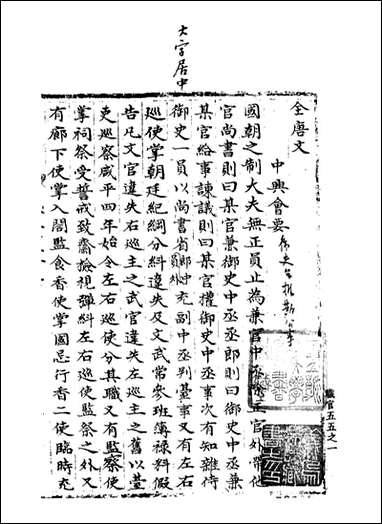 大字居中
全唐文
中興會要
國朝之制大夫無正員止為兼官中丞除正官外帶他
官尚書則曰某官兼御史中丞丞郎則曰御史中丞兼
某官給事諫議則曰某官權御史中丞事次有知雜侍
御史一員以尚書省郎中員外充副中丞判臺事又有左右
巡使掌朝廷紀綱分糾違失及文武常參班簿祿料假
告凡文官違失右巡主之武官違失左巡主之舊以臺
吏巡察咸平四年始令左右巡使分其職又有監察使
掌祠祭受誓戒致齋檢視彈糾左右巡使監祭之外又
有廊下使掌入閣監食香使掌國忌行香二使臨時充
職官五五之一